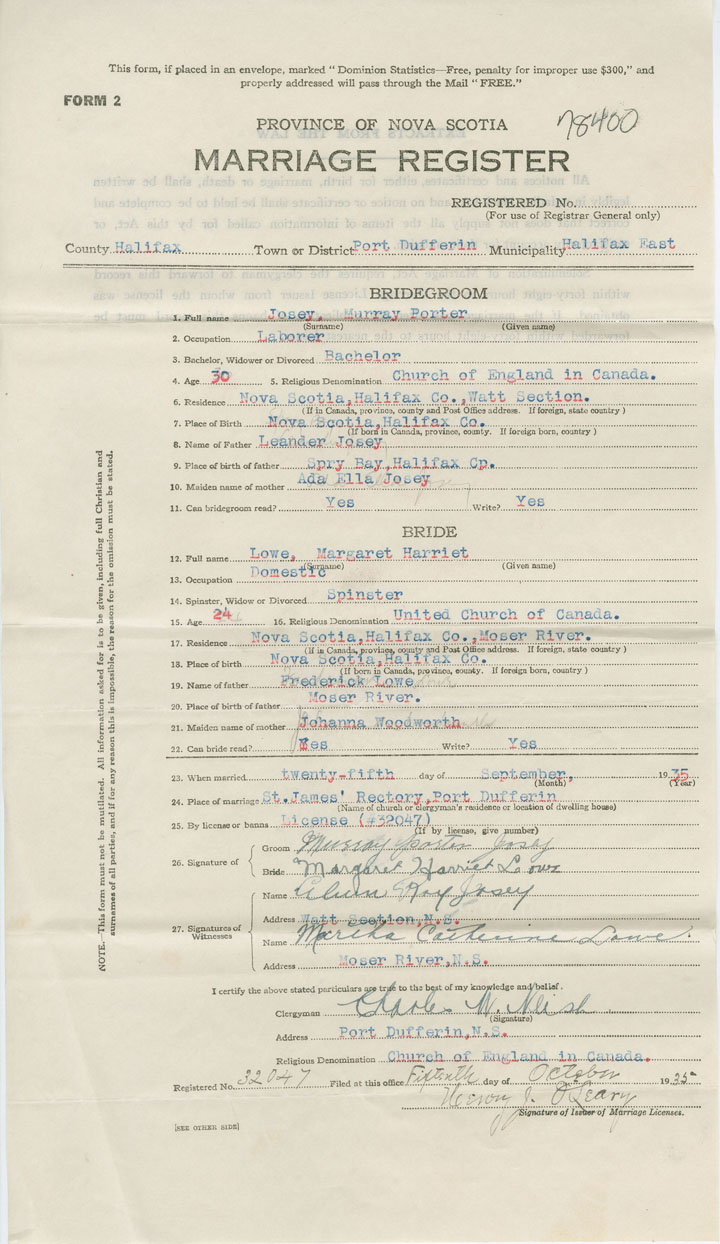 This form, if placed in an envelope, marked " Dominion Statistics—Free, penalty for improper use $300," and
properly addressed will pass through the Mail " FREE."
FORM 2
PROVINCE OF NOVA SCOTIA 78400
MARRIAGE REGISTER
REGISTERED No.
(For use of Registrar General only)
County Halifax Town or District Port Dufferin Municipality Halifax East
BRIDEGROOM
1. Full name Josey, Murray Porter
(Surname) (Given name)
2. Occupation Laborer
3. Bachelor, Widower or Divorced Bachelor
4. Age 30 5. Religious Denomination Church of England in Canada.
6. Residence Nova Scotia,Halifax Co.,Watt Section.
(If in Canada, province, county and Post Office address. If foreign, state country )
7. Place of Birth Nova Scotia,Halifax Co.
(If born in Canada, province, county. If foreign born, country )
8. Name of Father Leander Josey
9. Place of birth of father Spry Bay,Halifax Cp.
10. Maiden name of mother Ada Ella Josey
11. Can bridegroom read? Yes Write? Yes
BRIDE
12. Full name Lowe, Margaret Harriet
(Surname) (Given name)
13. Occupation Domestic
14. Spinster, Widow or Divorced Spinster
15. Age 24 16. Religious Denomination United Church of Canada.
17. Residence Nova Scotia,Halifax Co.,Moser River.
(If in Canada, province, county and Post Office address. If foreign, state country )
18. Place of birth Nova Scotia,Halifax Co.
(If born in Canada, province, county. If foreign born, country )
19. Name of father Frederick Lowe
20. Place of birth of father Moser River.
21. Maiden name of mother Johanna Woodworth
22. Can bride read? Yes Write? Yes
23. When married twenty-fifth day of September, 1935
(Month) (Year)
24. Place of marriage St.James' Rectory,Port Dufferin
(Name of church or clergyman's residence or location of dwelling house)
25. By license or banns License (#32047)
(If by license, give number)
26. Signature of
Groom Murray Porter Josey
Bride Margaret Harriet Lowe
27. Signatures of Witnesses
Name Roy Josey
Address Watt Section,N.S.
Name Martha Catherine Lowe.
Address Moser River,N.S.
I certify the above stated particulars are true to the best of my knowledge and belief.
Clergyman Charles W.
(Signature)
Address Port Dufferin,N.S.
Religious Denomination Church of England in Canada.
Registered No. 32047 Filed at this office Fifteenth day of October 1935
J. O'Leary
Signature of Issuer of Marriage Licenses.
[SEE OTHER SIDE]
NOTE.—This form must not be mutilated. All information asked for is to be given, including full Christian and
surnames of all parties, and if for any reason this is impossible, the reason for the omission must be stated.